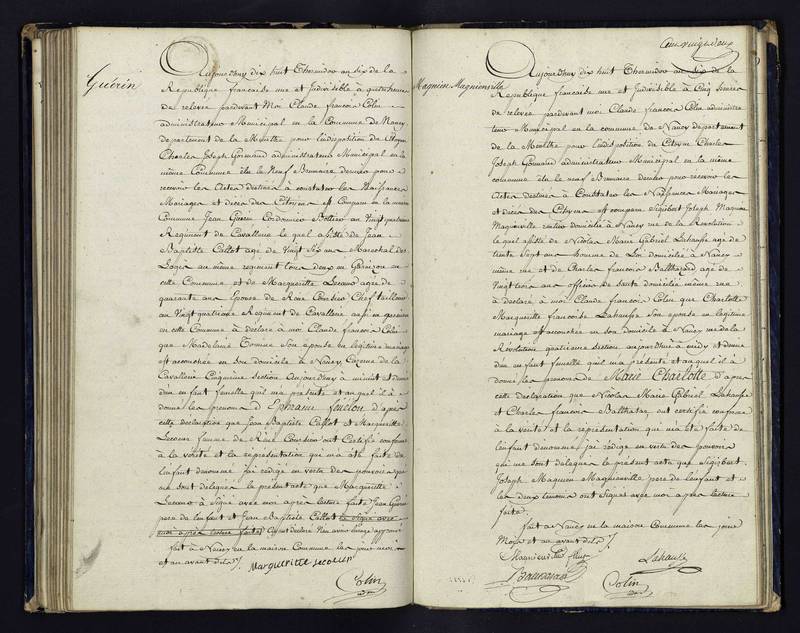 Guérin
Aujourd'huy dix huit Thermidor an six de la
Republique francaise une et Indivisible à quatre heures
de relevée pardevant Moi Claude francois Colin
administrateur Municipal en la Commune de Nancy
departement de la Meurthe pour l'indisposition du Citoyen
Charles Joseph Germand administrateur Municipal en la
même Commune élu le Neuf Brumaire dernier pour
recevoir les Actes destinés à constater les Naissances
Mariages et décès des Citoyens est Comparu en la maison
Commune Jean Guerin Cordonnier Bottier au Vingt quatrieme
Regiment de Cavallerie le quel assisté de Jean
Baptiste Callot agé de Vingt Six ans Marechal des
Logis au même regiment tous deux en Garnison en
cette Commune et de Marguerite Lecomo agée de
quarante ans épouse de René Coursier Chef tailleur
au Vingt quatrieme Regiment de Cavallerie aussi en garnison
en cette Commune à déclaré à moi Claude francois Colin
que Madelaine Tomine Son épouse en légitime mariage
est accouchée en son domicile à Nancy Cazerne de la
Cavallerie Cinquieme Section Aujourd'huy à minuit et demie
d'un enfant femelle qu'il m'a présenté et auquel il a
donné les prenoms d'Ephrami fenelon d'après
cette déclaration que Jean Baptiste Callot et Marguerite
Lecomo femme de René Coursier ont Certifié conforme
à la vérité et la représentation qui m'a été faite de
l'enfant dénommé j'ai rédigé en vertu des pouvoirs qui
me sont délégués le présent acte que Marguerite
Lecomo à Signé avec moi après lecture faite Jean Guerin
pere de l'enfant et Jean Baptiste Callot à Signé avec
moi après lecture faite ayant déclaré
fait à Nancy en la maison Commune les jour mois
et an avant dits /.
Marguerite Lecolier
Colin
Cent vingt deux
Magnien Magnienville
Aujourd'huy dix huit Thermidor an six de la
Republique francaise une et Indivisible à Cinq heures
de relevée pardevant moi Claude francois Colin administra
teur Municipal en la commune de Nancy departement
de la Meurthe pour l'indisposition de Citoyen Charles
Joseph Germand administrateur Municipal en la même
commune élu le neuf Brumaire dernier pour recevoir les
Actes destinés à Constater les Naissances Mariages
et décès des Citoyens est comparu Sigisbert Joseph Magnien
Magnienville rentier domicilié à Nancy rue de la Revolution
le quel assisté de Nicolas Marie Gabriel Lahausse agé de
trente Sept ans homme de Loi domicilié à Nancy
même rue et de Charles francois Balthazard agé de
Vingt trois ans officier de Santé domicilié même rue
à déclaré à moi Claude francois Colin que Charlotte
Marguerite francoise Lahausse Son épouse en légitime
mariage est accouchée en son domicile à Nancy rue de la
Révolution quatrieme Section aujourd'hui à midy et demie
d'un enfant femelle qu'il m'a présenté et auquel il à
donné les prenoms de Marie Charlotte d'après
cette déclaration que Nicolas Marie Gabriel Lahausse
et Charles francois Balthazar ont certifié conforme
à la vérité et la représentation qui m'a été faite de
l'enfant dénommé j'ai rédigé en vertu des pouvoirs
qui me sont délégués le présent acte que Sigisbert
Joseph Magnien Magnienville pere de l'enfant et
les deux temoins ont Signés avec moi après lecture
faite.
fait à Nancy en la maison Commune les jour
Mois et an avant dits /.
Lahausse
Colin